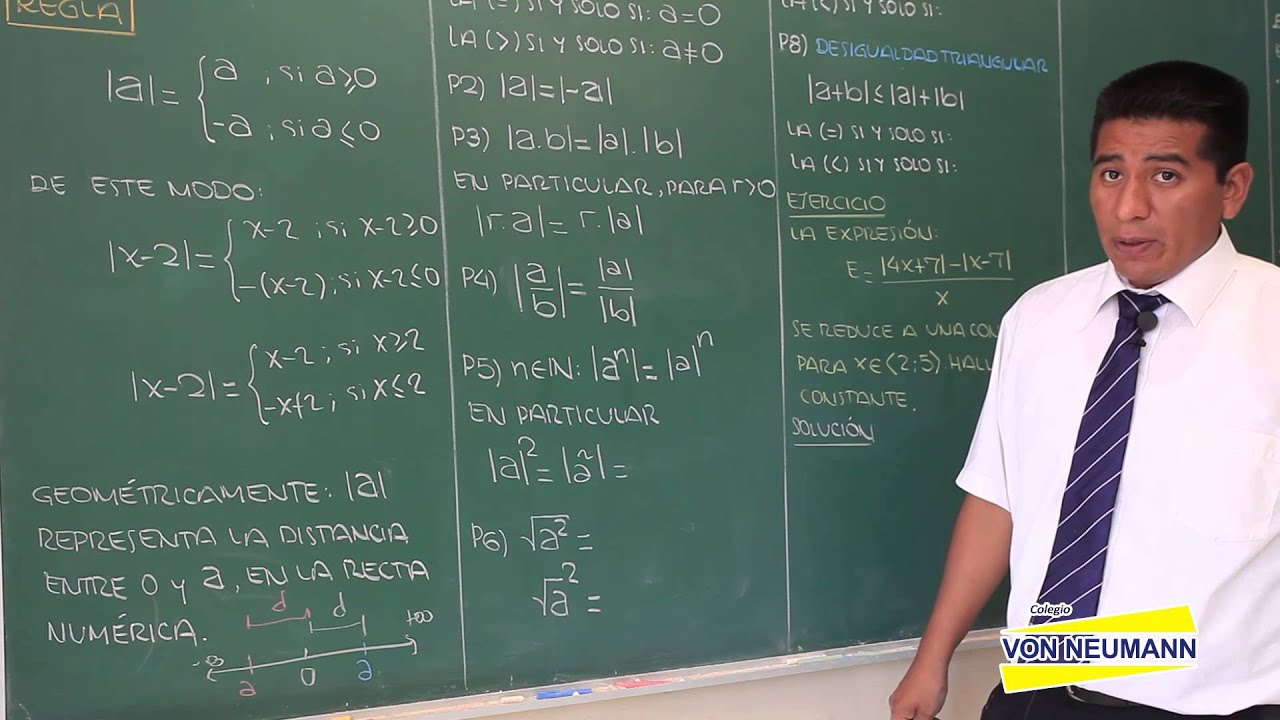 REGLA
|a| = { a ; si a ≥ 0
-a ; si a ≤ 0
DE ESTE MODO:
|x-2| = { x-2 ; si x-2 ≥ 0
-(x-2) ; si x-2 ≤ 0
|x-2| = { x-2 ; si x ≥ 2
-x+2 ; si x ≤ 2
GEOMÉTRICAMENTE: |a|
REPRESENTA LA DISTANCIA
ENTRE 0 y a, EN LA RECTA
NUMÉRICA.
d d
-∞ +∞
a 0 a
LA (=) SI Y SOLO SI: a=0
LA (>) SI Y SOLO SI: a≠0
P2) |a|=|-a|
P3) |a.b|=|a|.|b|
EN PARTICULAR, PARA r>0
|r.a|= r.|a|
P4) |a/b| = |a|/|b|
P5) n∈IN: |aⁿ|=|a|ⁿ
EN PARTICULAR
|a|²=|a²|=
P6) √a² =
√a ² =
LA (<) SI Y SOLO SI:
P8) DESIGUALDAD TRIANGULAR
|a+b| ≤ |a|+|b|
LA (=) SI Y SOLO SI:
LA (<) SI Y SOLO SI:
EJERCICIO
LA EXPRESIÓN:
E = |4x+7|-|x-7|
x
SE REDUCE A UNA CON
PARA x∈⟨2;5⟩ HALL
CONSTANTE.
SOLUCIÓN
Colegio
VON NEUMANN